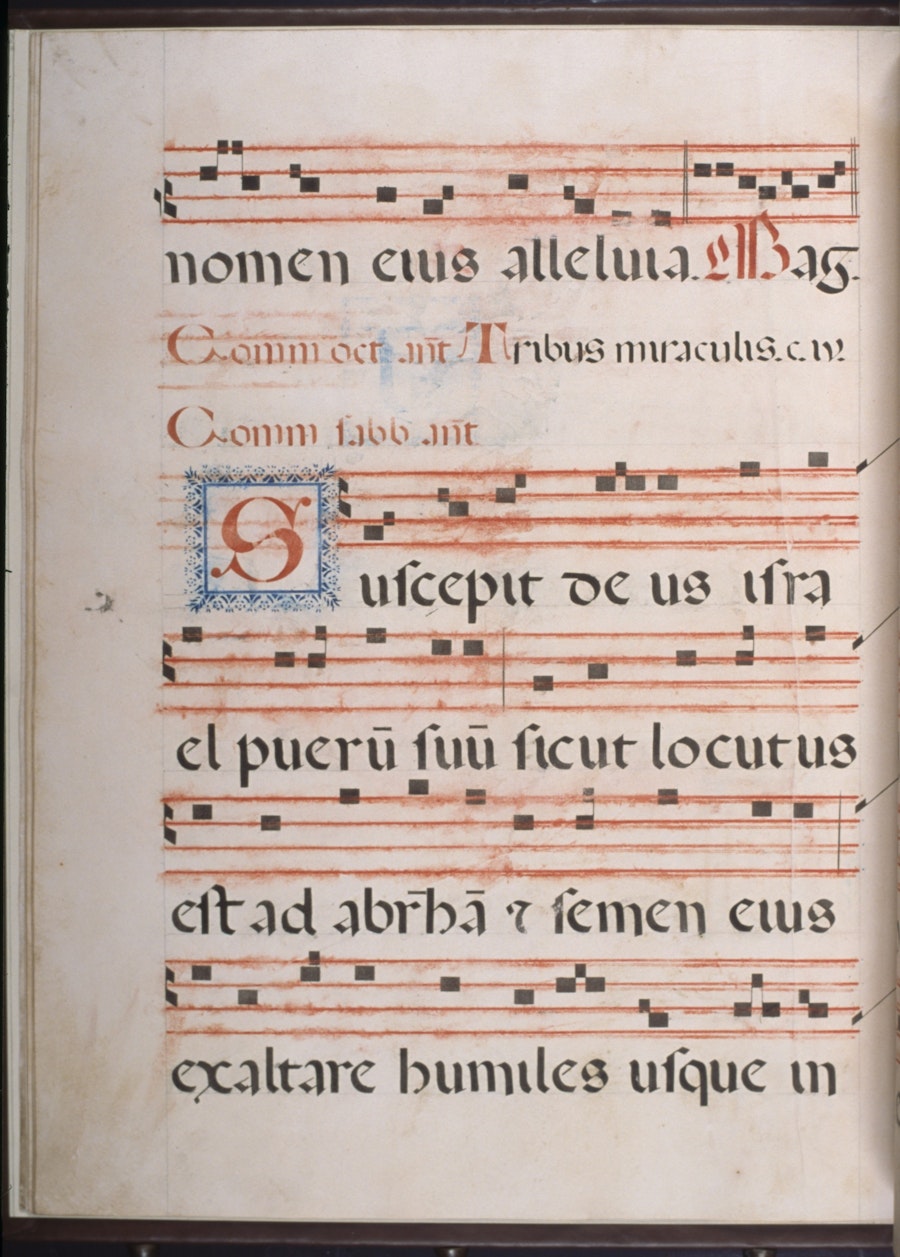 nomen eius alleluia. Mag.
Comm oct añt Tribus miraculis. c. iv.
Comm sabb añt
Suscepit de us isra
el puerū suū sicut locutus
est ad abrħā ⁊ semen eius
exaltare humiles usque in